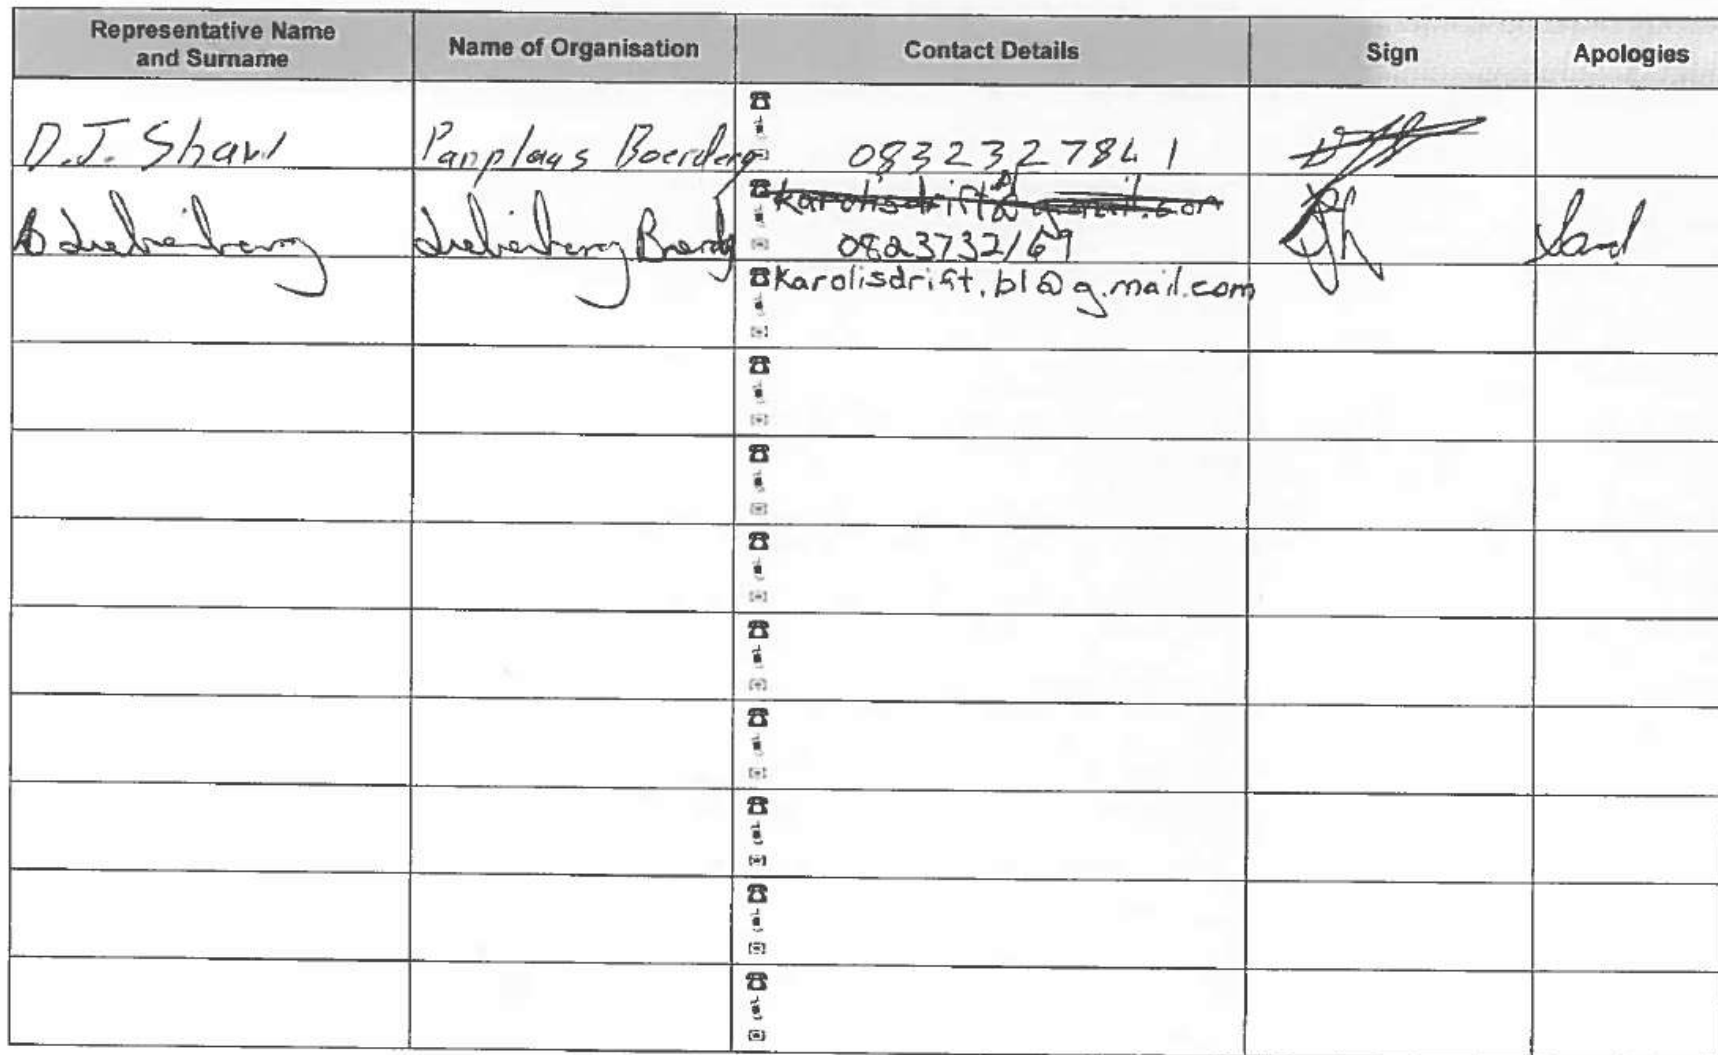 Representative Name
and Surname
Name of Organisation
Contact Details
Sign
Apologies
D.J. Shaw
Panplaas Boerdery
0832327841
B Liebenberg
Liebenberg Boerdery
karolisdrift@gmail.com
0823732169
Karolisdrift.bl@g.mail.com